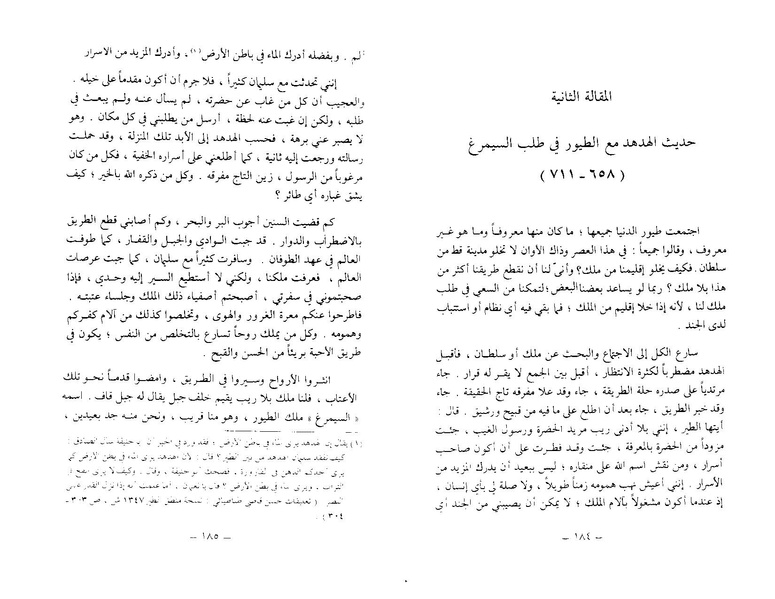 المقالة الثانية
حديث الهدهد مع الطيور في طلب السيمرغ
( ٦٥٨ - ٧١١ )
اجتمعت طيور الدنيا جميعها ؛ ما كان منها معروفاً وما هو غير
معروف ، وقالوا جميعاً : في هذا العصر وذاك الأوان لا تخلو مدينة قط من
سلطان . فكيف يخلو إقليمنا من ملك ؟ وأنى لنا أن نقطع طريقنا أكثر من
هذا بلا ملك ؟ ربما لو يساعد بعضنا البعض ؛ لتمكنا من السعي في طلب
ملك لنا ، لأنه إذا خلا إقليم من الملك ؛ فما بقي فيه أي نظام أو استتباب
لدى الجند .
سارع الكل إلى الاجتماع والبحث عن ملك أو سلطان ، فأقبل
الهدهد مضطرباً لكثرة الانتظار ، أقبل بين الجمع لا يقر له قرار . جاء
مرتدياً على صدره حلة الطريقة ، جاء وقد علا مفرقه تاج الحقيقة . جاء
وقد خبر الطريق ، جاء بعد أن اطلع على ما فيه من قبيح ورشيق . قال :
أيتها الطير ، إنني بلا أدنى ريب مريد الحضرة ورسول الغيب ، جئت
مزوداً من الحضرة بالمعرفة ، جئت وقد فطرت على أن أكون صاحب
أسرار ، ومن نقش اسم الله على منقاره ؛ ليس ببعيد أن يدرك المزيد من
الأسرار . إنني أعيش نهب همومه زمناً طويلاً ، ولا صلة لي بأي إنسان ،
إذ عندما أكون مشغولاً بآلام الملك ؛ لا يمكن أن يصيبني من الجند أي
— ١٨٤ —
ألم . وبفضله أدرك الماء في باطن الأرض (١) ، وأدرك المزيد من الاسرار
إنني تحدثت مع سليمان كثيراً ، فلا جرم أن أكون مقدماً على خيله .
والعجيب أن كل من غاب عن حضرته ، لم يسأل عنه ولم يبعث في
طلبه ، ولكن إن غبت عنه لحظة ، أرسل من يطلبني في كل مكان . وهو
لا يصبر عني برهة ، فحسب الهدهد إلى الأبد تلك المنزلة ، وقد حملت
رسالته ورجعت إليه ثانية ، كما أطلعني على أسراره الخفية ، فكل من كان
مرغوباً من الرسول ، زين التاج مفرقه . وكل من ذكره الله بالخير ؛ كيف
يشق غباره أي طائر ؟
كم قضيت السنين أجوب البر والبحر ، وكم أصابني قطع الطريق
بالاضطراب والدوار . قد جبت الوادي والجبل والقفار ، كما طوفت
العالم في عهد الطوفان . وسافرت كثيراً مع سليمان ، كما جبت عرصات
العالم ، فعرفت ملكنا ، ولكني لا أستطيع السير إليه وحدي ، فإذا
صحبتموني في سفرتي ، أصبحتم أصفياء ذلك الملك وجلساء عتبته .
فاطرحوا عنكم معرة الغرور والهوى ، وتخلصوا كذلك من آلام كفركم
وهمومه . وكل من يملك روحاً تسارع بالتخلص من النفس ؛ يكون في
طريق الأحبة بريئاً من الحسن والقبح .
انثروا الأرواح وسيروا في الطريق ، وامضوا قدماً نحو تلك
الأعتاب ، فلنا ملك بلا ريب يقيم خلف جبل يقال له جبل قاف . اسمه
« السيمرغ » ملك الطيور ، وهو منا قريب ، ونحن منه جد بعيدين ،
(١) يقال إن الهدهد يرى الماء في باطن الأرض ؛ فقد ورد في
٣٠٤ ) .
— ١٨٥ —